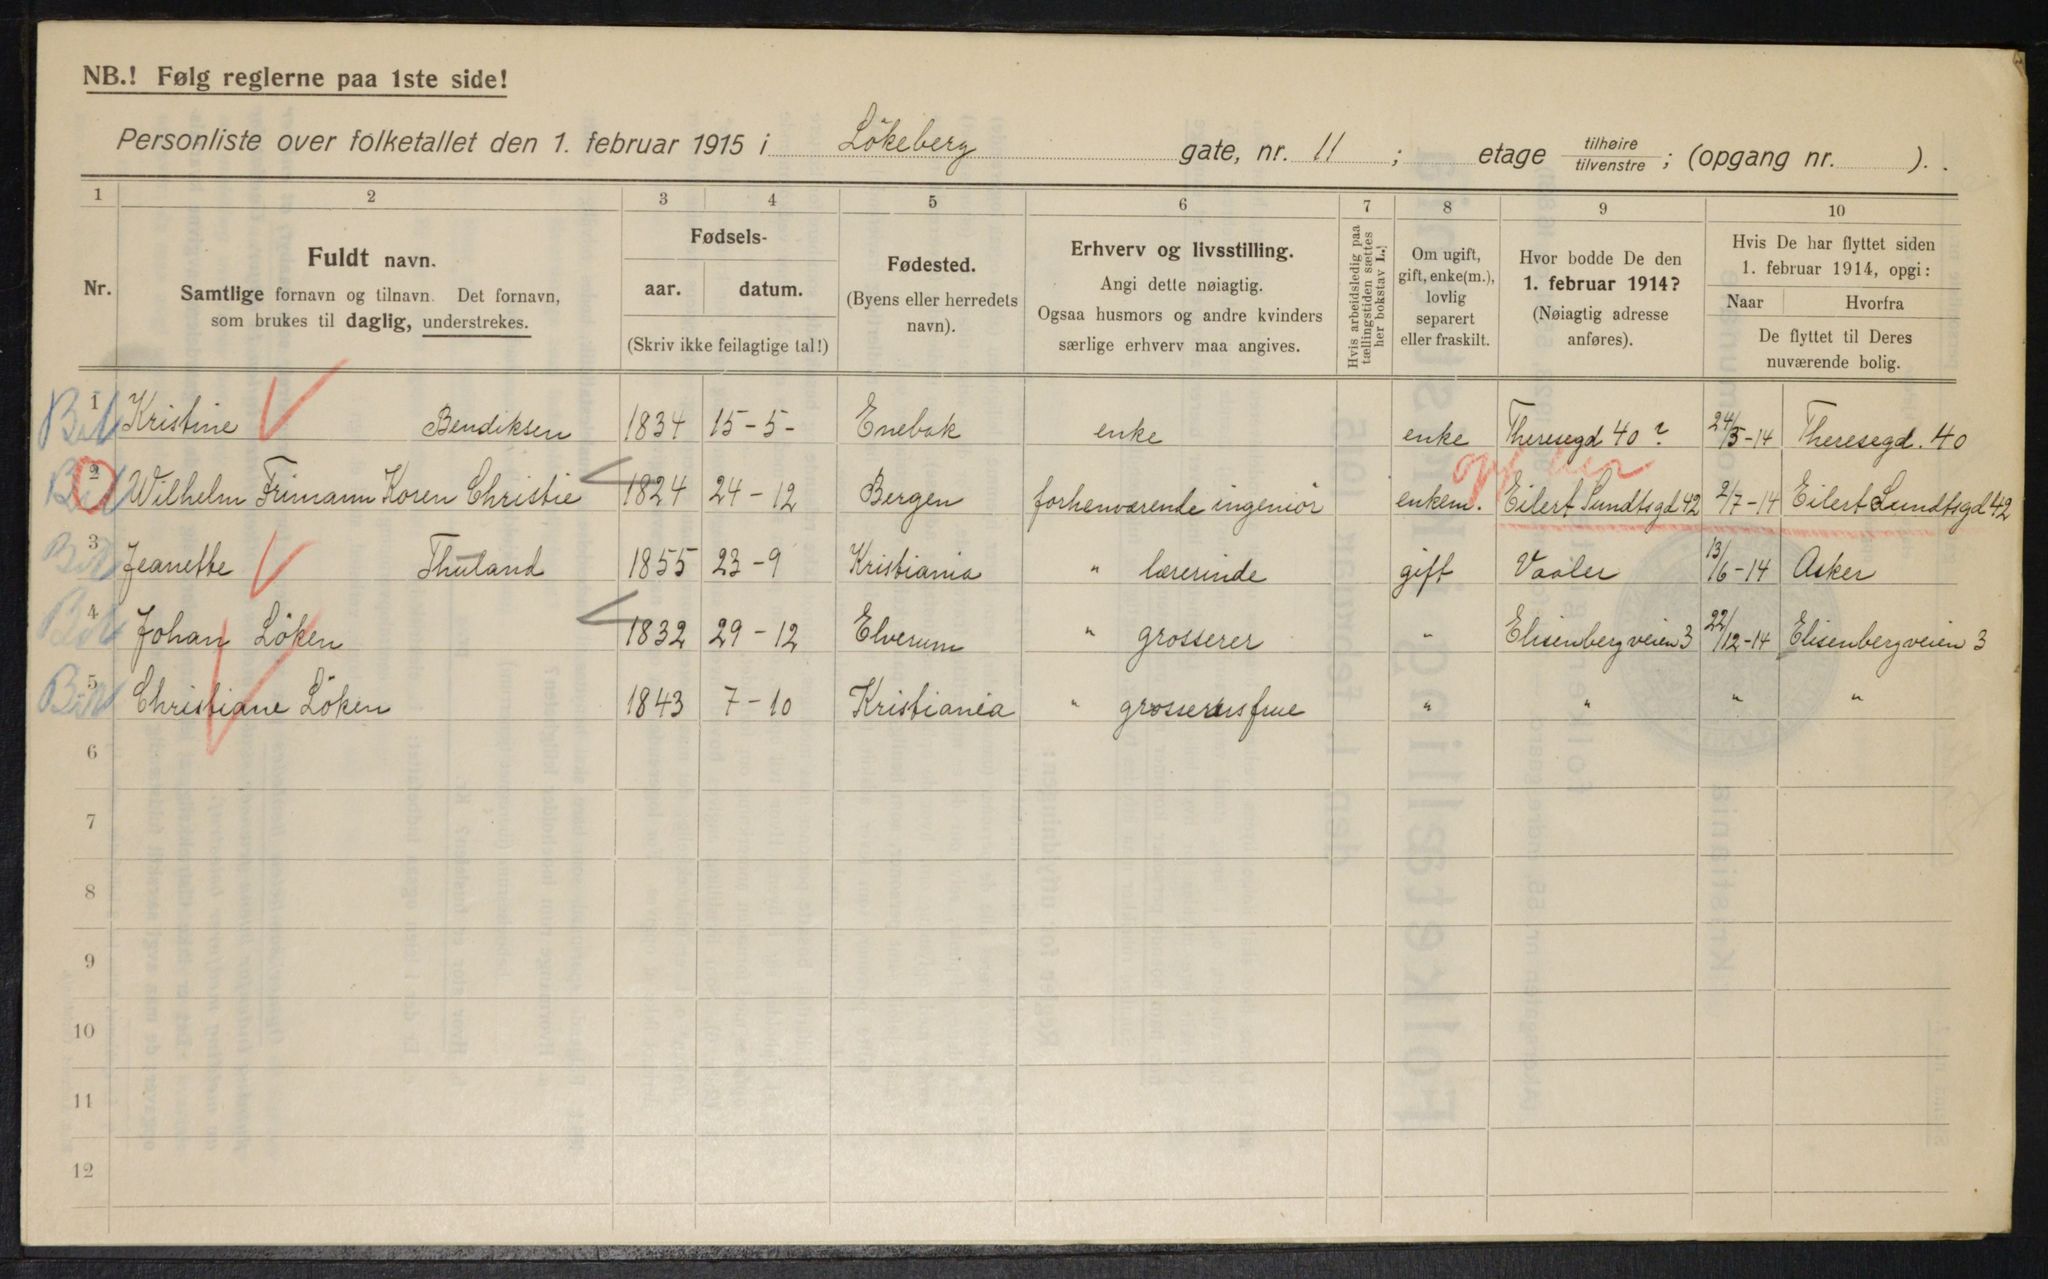 NB.! Følg reglerne paa 1ste side!
Personliste over folketallet den 1. februar 1915 i Lökeberg gate, nr. 11 ; etage tilhøire tilvenstre ; (opgang nr. ).
1 2 3 4 5 6 7 8 9 10
Nr.
Fuldt navn.
Samtlige fornavn og tilnavn. Det fornavn,
som brukes til daglig, understrekes.
Fødsels-
aar. datum.
(Skriv ikke feilagtige tal!)
Fødested.
(Byens eller herredets
navn).
Erhverv og livsstilling.
Angi dette nøiagtig.
Ogsaa husmors og andre kvinders
særlige erhverv maa angives.
Hvis arbeidsledig paa
tællingstiden sættes
her bokstav L.
Om ugift,
gift, enke(m.),
lovlig
separert
eller fraskilt.
Hvor bodde De den
1. februar 1914?
(Nøiagtig adresse
anføres).
Hvis De har flyttet siden
1. februar 1914, opgi:
Naar Hvorfra
De flyttet til Deres
nuværende bolig.
1 Kristine Bendiksen 1834 15-5- Enebak enke enke Theresegd 40? 24/5-14 Theresegd. 40
2 Wilhelm Frimann Koren Christie 1824 24-12 Bergen forhenværende ingeniör enkem. Eilert Sundtsgd 42 2/7-14 Eilert Sundtsgd 42
3 Jeanette Thuland 1855 23-9 Kristiania " lærerinde gift Vaaler 13/6-14 Asker
4 Johan Löken 1832 29-12 Elverum " grosserer " Elisenbergveien 3 22/12-14 Elisenbergveien 3
5 Christiane Löken 1843 7-10 Kristiania " grosserersfrue " " " "
6
7
8
9
10
11
12